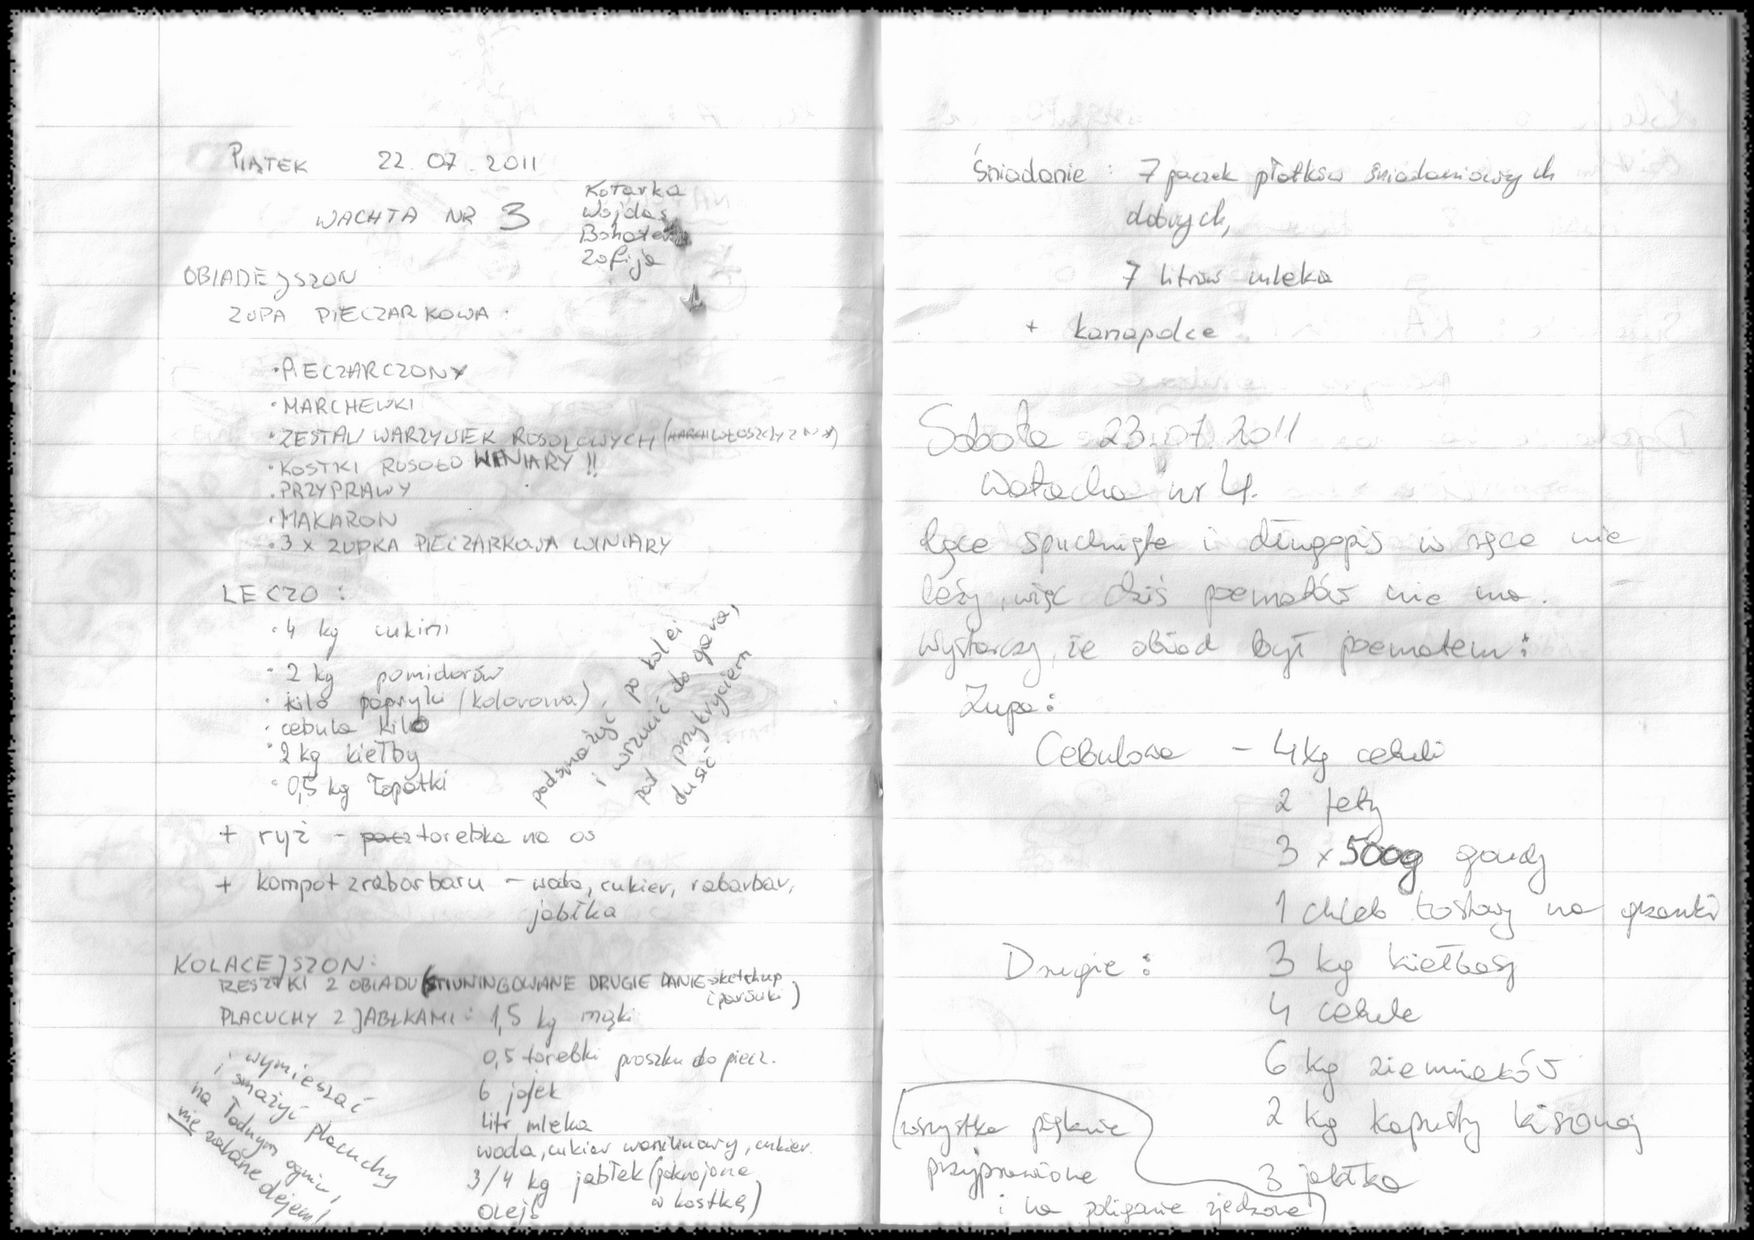 PIĄTEK 22.07.2011
WACHTA NR 3
Kotarka
Wojdas
Zofija
OBIADEJSZON
ZUPA PIECZARKOWA
• PIECZARCZONY
• MARCHEWKI
• ZESTAW WARZYWEK ROSOŁOWYCH (WŁOSZCZYZNY)
• KOSTKI ROSOŁO WINIARY !!
• PRZYPRAWY
• MAKARON
• 3 x ZUPKA PIECZARKOWA WINIARY
LECZO :
• 4 kg cukini
• 2 kg pomidorów
• kilo papryki (kolorowa)
• cebula kilo
• 2 kg kiełby
• 0,5 kg łopatki
podsmażyć po kolei
i wrzucić do gara,
pod przykryciem
dusić
+ ryż - torebka na os
+ kompot z rabarbaru - woda, cukier, rabarbar,
jabłka
KOLACEJSZON:
RESZTKI Z OBIADU (STIUNINGOWANE DRUGIE DANIE - sketchup
i parówki)
PLACUCHY Z JABŁKAMI: 1,5 kg mąki
0,5 torebki proszku do piecz.
6 jajek
litr mleka
woda, cukier wanilinowy, cukier.
3/4 kg jabłek (pokrojone
w kostkę)
olej
i wymieszać
i smażyć placuchy
na ładnym ogniu,
nie zalane olejem!
Śniadanie : 7 paczek płatków śniadaniowych
dobrych,
7 litrów mleka
+ kanapolce
Sobota 23.07.2011
Watacha nr 4.
Ręce spuchnięte i długopis w ręce nie
leży, więc dziś poematów nie ma.
Wystarczy, że obiad był poematem:
Zupa:
Cebulowa - 4kg cebuli
2 fety
3 x 500g goudy
1 chleb tostowy na grzanki
Drugie : 3 kg kiełbasy
4 cebule
6 kg ziemniaków
2 kg kapusty kiszonej
3 jabłka
(wszystko pięknie
przyprawione
i na poliganie zjedzone)